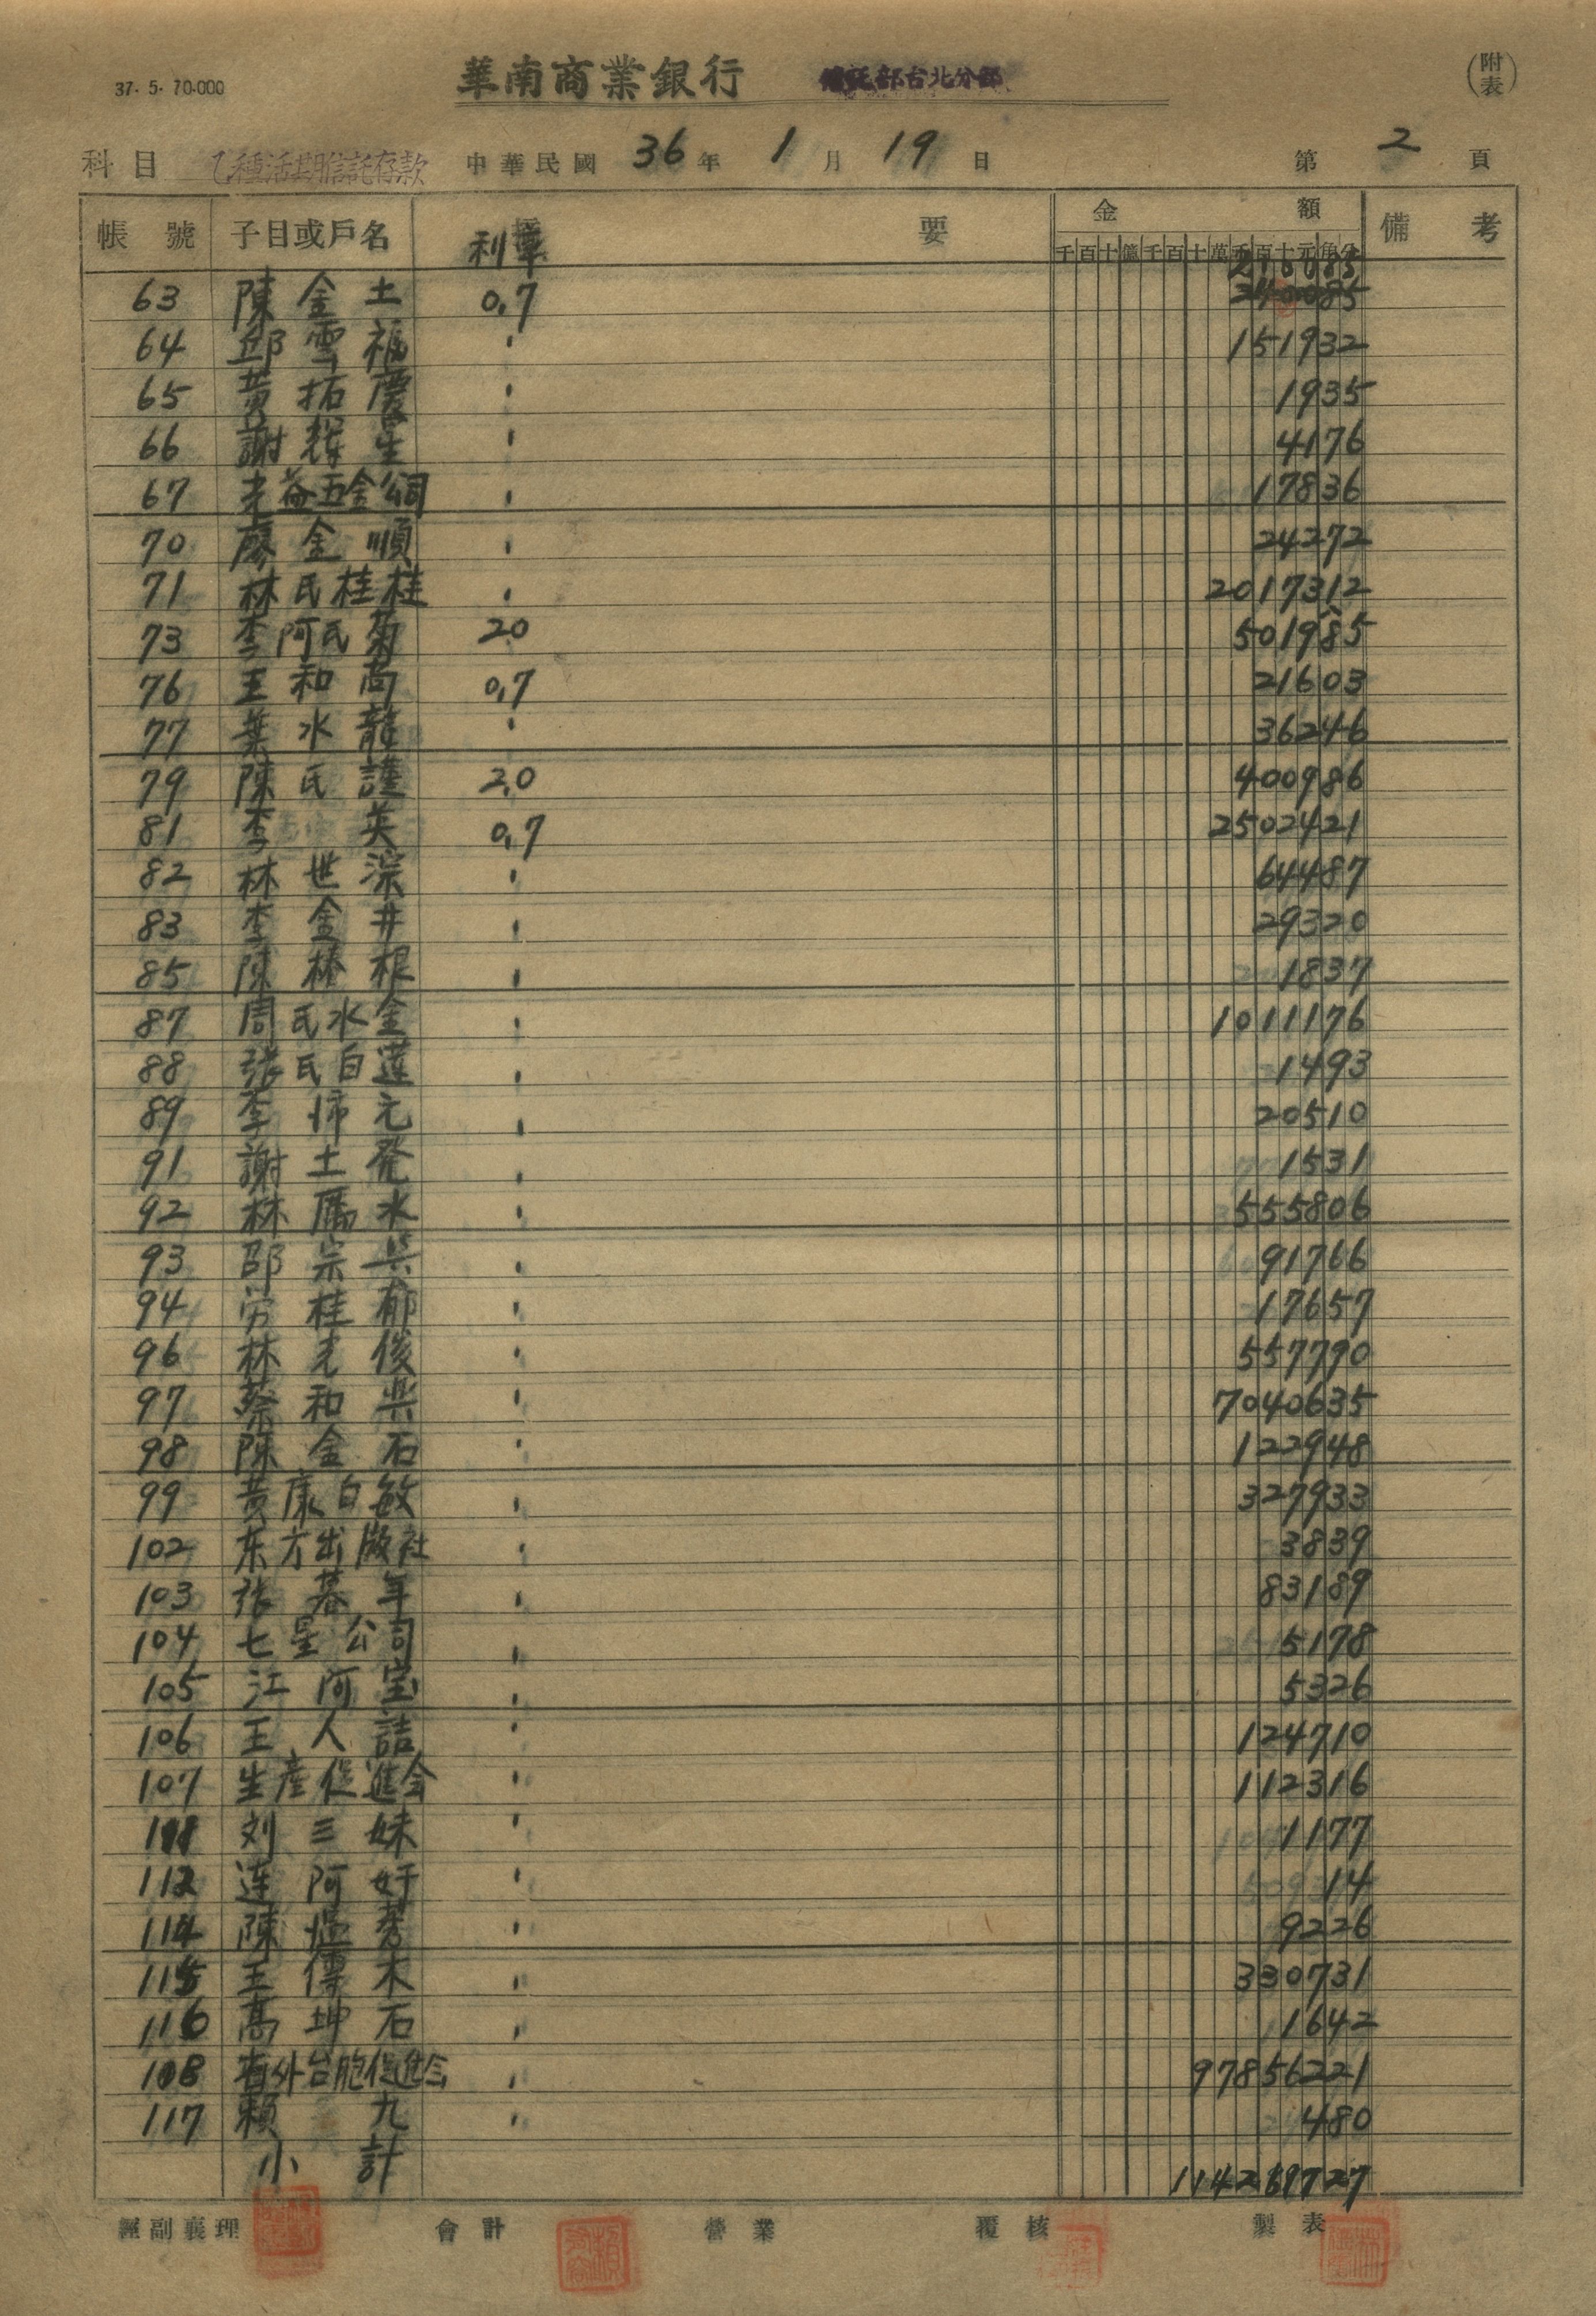 37. 5. 70.000
華南商業銀行 信託部台北分部 (附表)
科目 乙種活期信託存款 中華民國 36 年 1 月 19 日 第 2 頁
帳號 子目或戶名 摘要 利率 金額 備考
千百十億千百十萬千百十元角分
63 陳金土 0.7
64 邱雪福 〃 151932
65 黃拓慶 〃 1935
66 謝輝生 〃 4176
67 光益五金公司 〃 17836
70 廖金順 〃 24272
71 林氏桂桂 〃 2017312
73 李阿氏菊 20 501985
76 王和尚 0.7 21603
77 葉水龍 〃 36246
79 陳氏謹 2.0 400986
81 李英 0.7 2502421
82 林世淙 〃 64487
83 李金井 〃 29320
85 陳椿根 〃 1837
87 周氏水金 〃 1011176
88 張氏白蓮 〃 1493
89 李沛元 〃 20510
91 謝土発 〃 1531
92 林厲水 〃 555806
93 邵宗兴 〃 91766
94 労桂郁 〃 17657
96 林光俊 〃 557790
97 蔡和兴 〃 7040635
98 陳金石 〃 122948
99 黃康白敏 〃 327933
102 东方出版社 〃 3839
103 张暮年 〃 83189
104 七星公司 〃 5178
105 江阿宝 〃 5326
106 王人喆 〃 124710
107 生産促進会 〃 112316
刘三妹 〃 1177
112 连阿好 〃 14
114 陳 〃 9226
115 王傳木 〃 330731
116 高坤石 〃 1642
108 省外台胞促進会 〃 97856221
117 賴九 〃 480
小計 114269727
經副襄理 會計 營業 覆核 製表